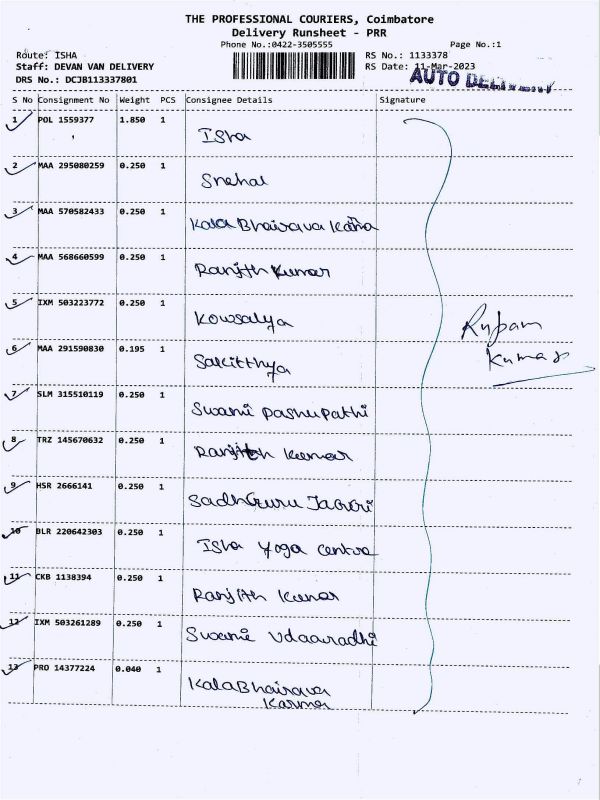 THE PROFESSIONAL COURIERS, Coimbatore
Delivery Runsheet - PRR
Phone No.:0422-3505555 Page No.:1
Route: ISHA RS No.: 1133378
Staff: DEVAN VAN DELIVERY RS Date: 11-Mar-2023
DRS No.: DCJB113337801 AUTO DELIVERY
S No Consignment No Weight PCS Consignee Details Signature
1 POL 1559377 1.850 1 Isha
2 MAA 295080259 0.250 1 Snehal
3 MAA 570582433 0.250 1 Kala Bhairava
4 MAA 568660599 0.250 1 Ranjith Kumar
5 IXM 503223772 0.250 1 Kowsalya
Rupam
Kumar
6 MAA 291590830 0.195 1
7 SLM 315510119 0.250 1 Swami Pashupathi
8 TRZ 145670632 0.250 1 Ranjith Kumar
9 HSR 2666141 0.250 1 Sadhguru
10 BLR 220642303 0.250 1 Isha Yoga Centre
11 CKB 1138394 0.250 1 Ranjith Kumar
12 IXM 503261289 0.250 1 Swami
13 PRO 14377224 0.040 1 KalaBhairava
Karma